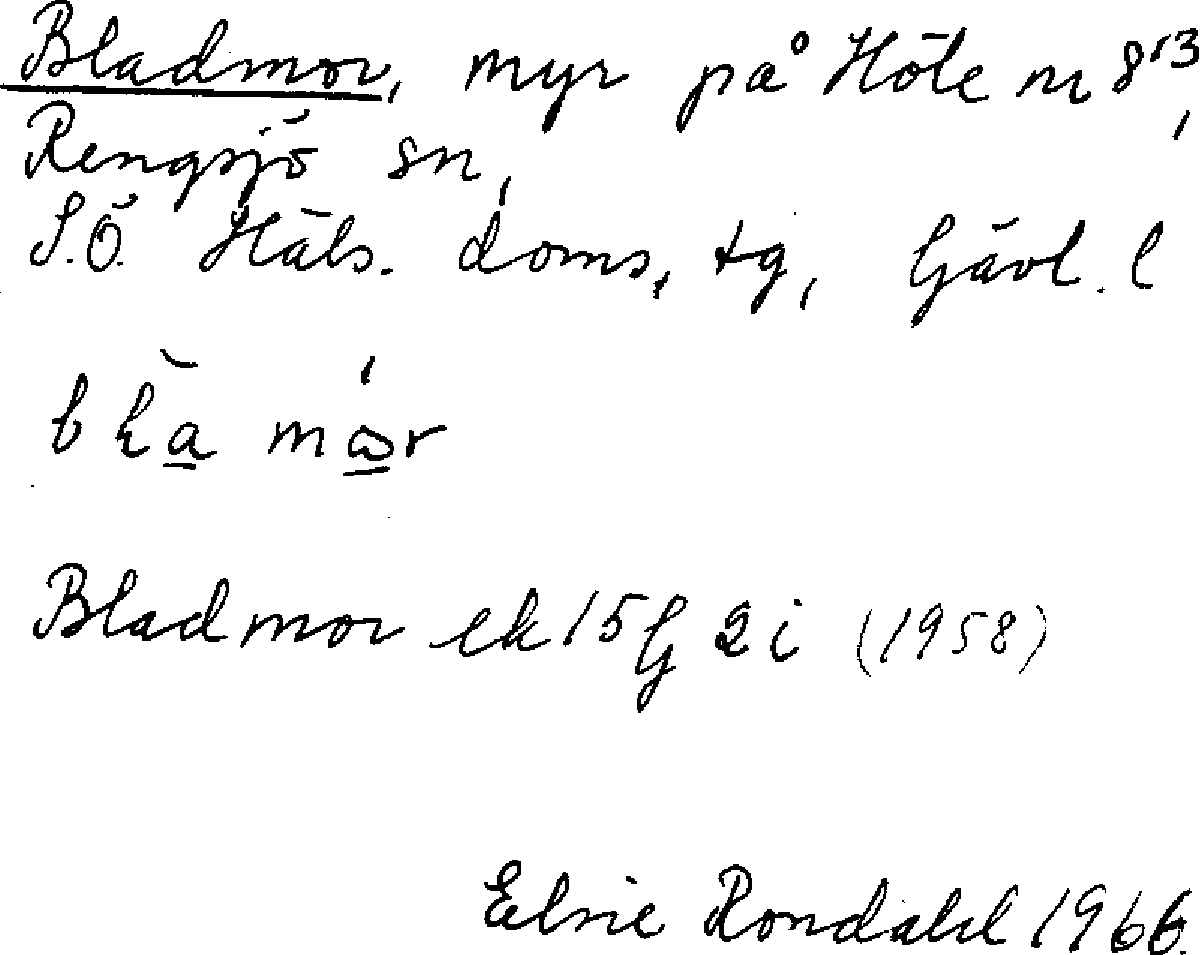 Bladmor, myr på Höle nr 8¹³,
Rengsjö sn,
S.Ö. Häls. doms, tg, Gävl. l
Bladmor ek 15G 2i (1958)
Elsie Rondahl 1966.